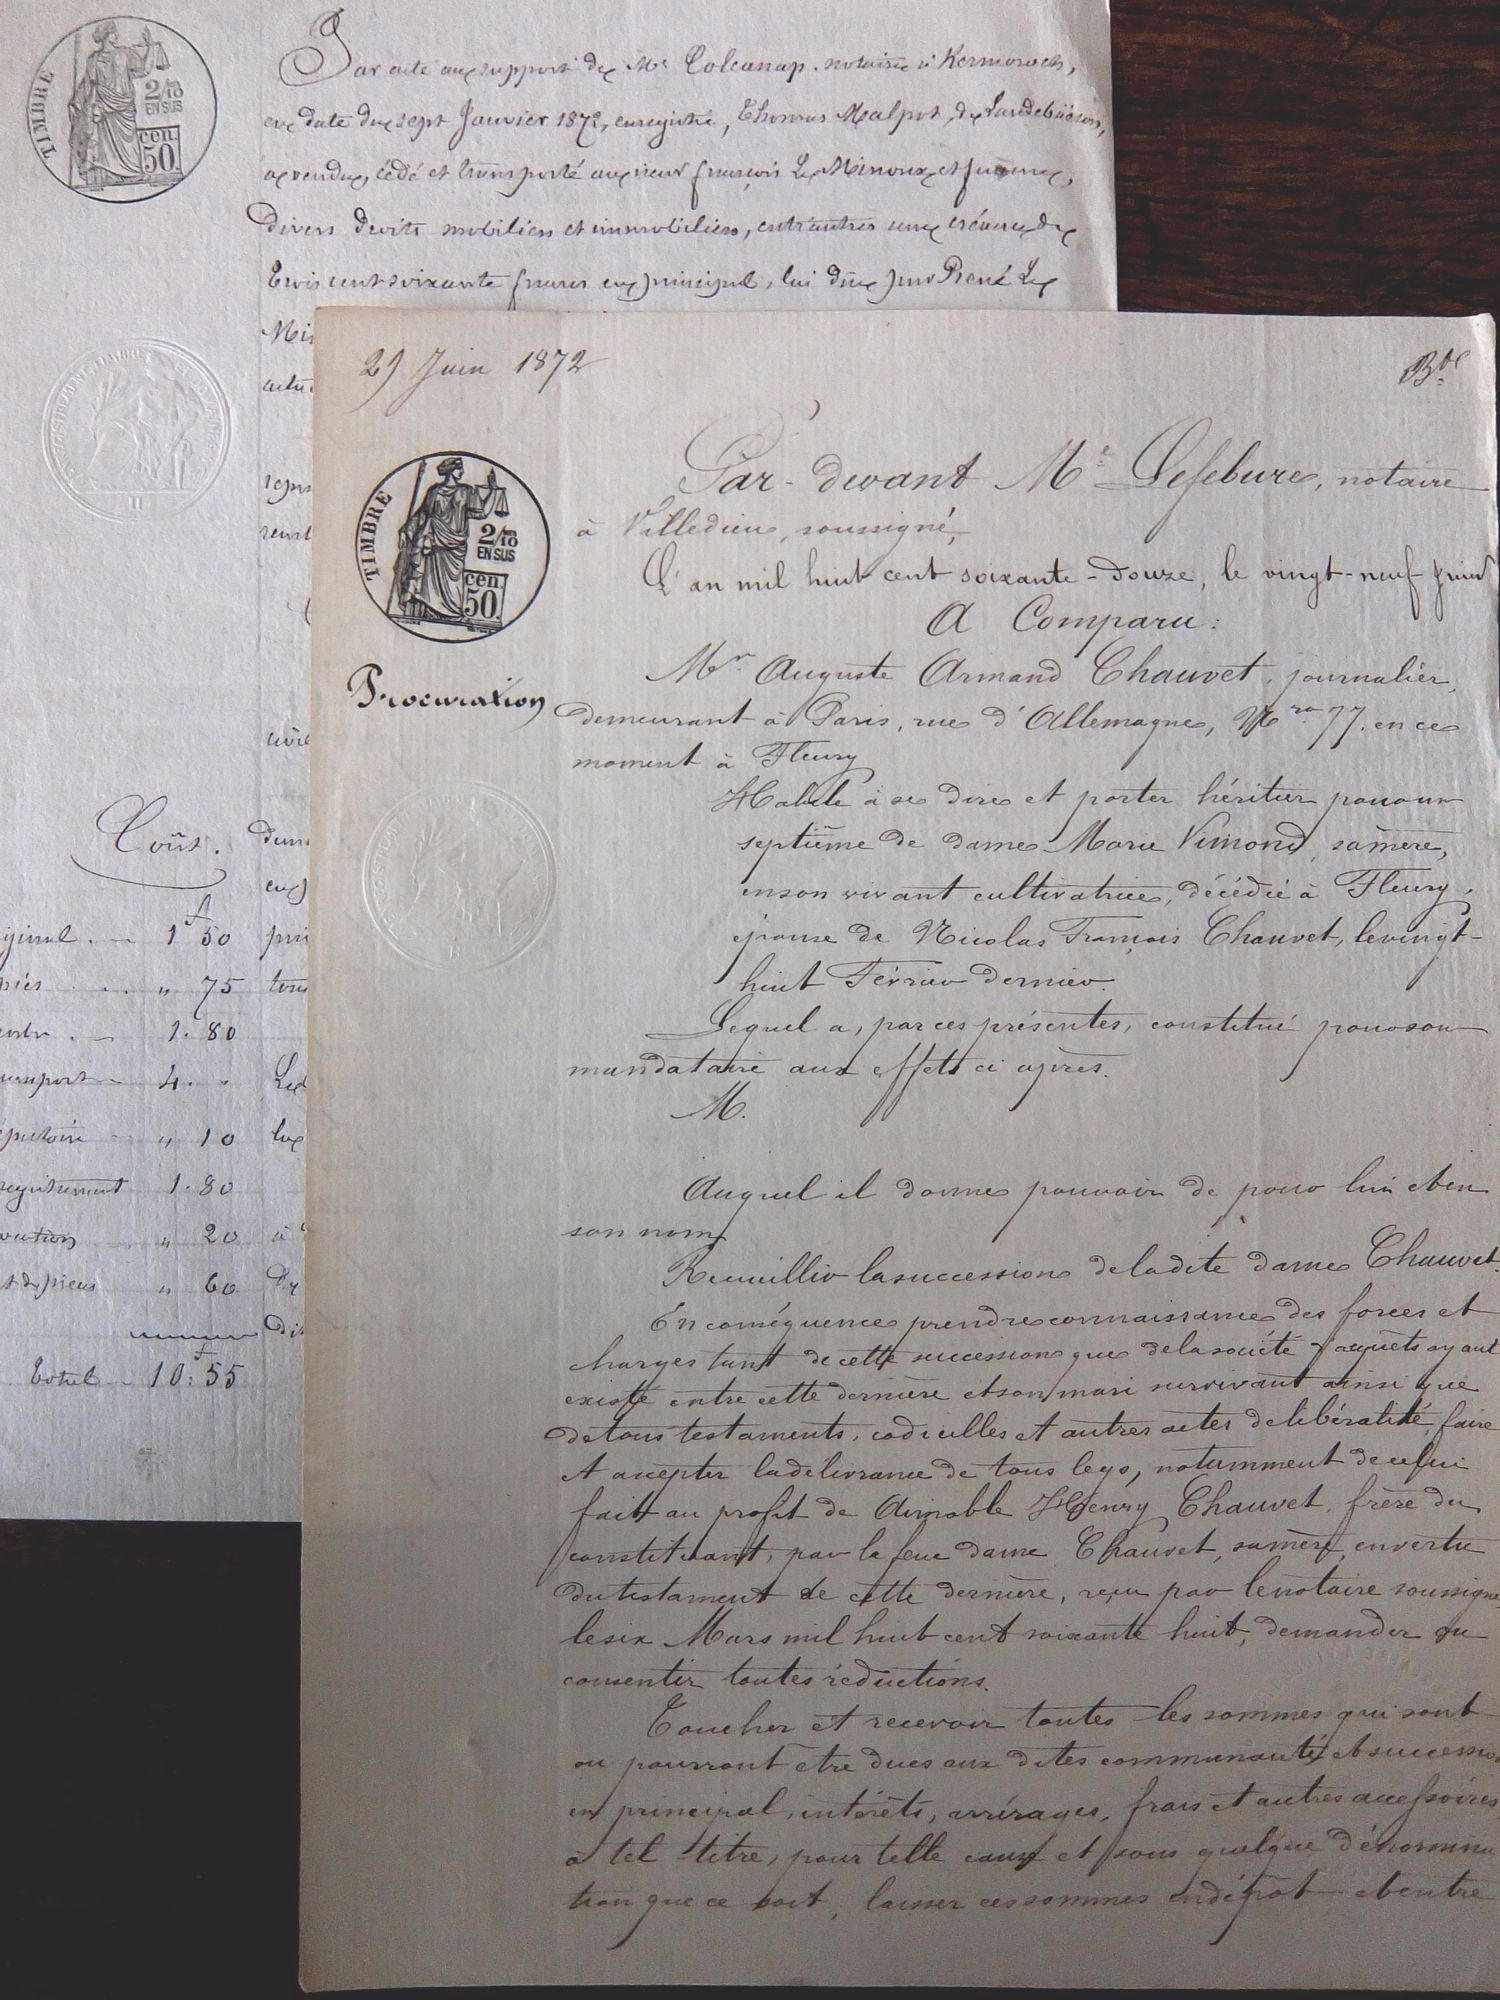 TIMBRE
2/10
EN SUS
cen
50.
Par acte au rapport de Me Colcanap, notaire à Kermoroch,
en date du sept Janvier 1872, enregistré, Thomas Malpot, de
a vendu, cédé et transporté au sieur françois Le Minoux et femme,
Divers droits mobiliers et immobiliers, entr'autres une créance de
Trois cent soixante francs en principal, lui due par René Le
Coût.
f
1 50
" 75
1. 80
4. "
" 10
1. 80
" 20
" 60
Total 10f 55
29 Juin 1872
Bel
TIMBRE
2/10
EN SUS
cen
50.
Procuration
Par-devant Me Lefebure, notaire
à Villedieu, soussigné,
L'an mil huit cent soixante-douze, le vingt-neuf juin
A Comparu:
Mr Auguste Armand Chauvet, journalier,
demeurant à Paris, rue d'Allemagne, Nro 77, en ce
moment à Fleury
Habile à se dire et porter héritier pour un
septième de dame Marie Vimond, sa mère,
en son vivant cultivatrice, décédée à Fleury,
épouse de Nicolas François Chauvet, le vingt-
huit Février dernier.
Lequel a, par ces présentes, constitué pour son
mandataire aux effets ci après.
M.
Auquel il donne pouvoir de pour lui et en
son nom
Recueillir la succession de la dite dame Chauvet.
En conséquence prendre connaissance des forces et
charges tant de cette succession que de la société d'acquêts ayant
existé entre cette dernière et son mari survivant ainsi que
de tous testaments, codicilles et autres actes de libéralité, faire
et accepter la délivrance de tous legs, notamment de celui
fait au profit de Aimable Henry Chauvet, frère du
constituant, par la feue dame Chauvet, sa mère, en vertu
du testament de cette dernière, reçu par le notaire soussigné
le six Mars mil huit cent soixante huit, demander ou
consentir toutes réductions.
Toucher et recevoir toutes les sommes qui sont
ou pourront être dues aux dites communauté et succession
en principal, intérêts, arrérages, frais et autres accessoires
à tel titre, pour telle cause et sous quelque dénomina
tion que ce soit, laisser ces sommes en dépôt et entre